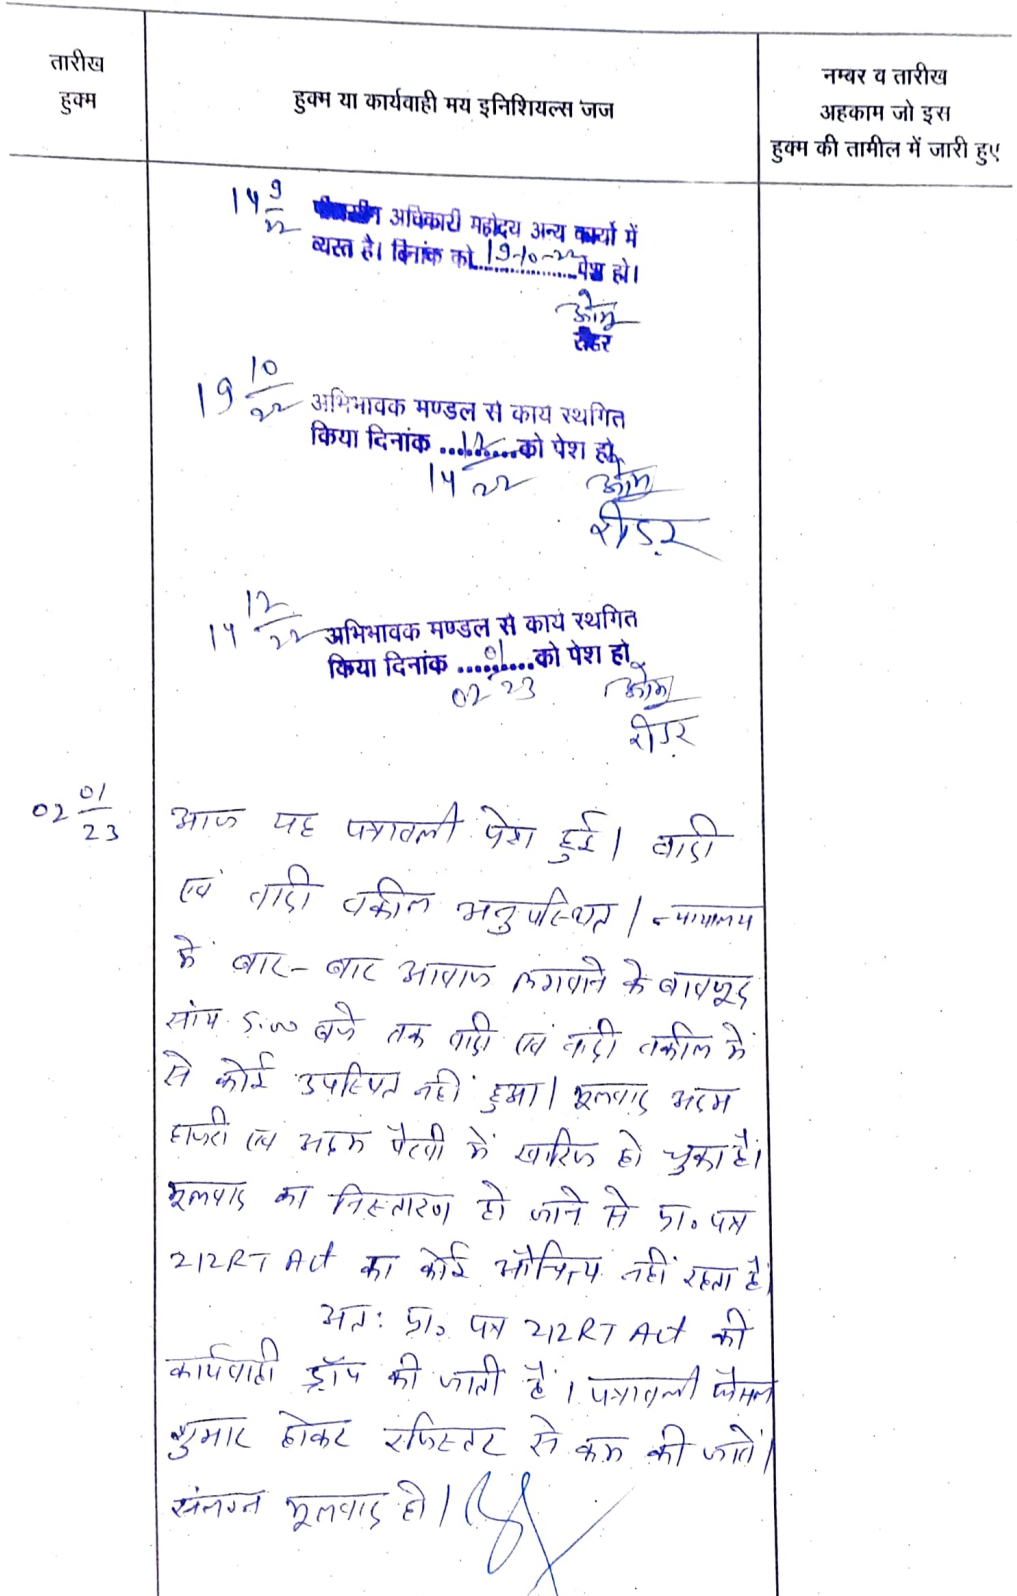 तारीख
हुक्म
हुक्म या कार्यवाही मय इनिशियल्स जज
नम्बर व तारीख
अहकाम जो इस
हुक्म की तामील में जारी हुए
14 9/22 पीठासीन अधिकारी महोदय अन्य कार्यो में
व्यस्त है। दिनांक को 19-10-22 पेश हो।
रीडर
19 10/22 अभिभावक मण्डल से कार्य स्थगित
किया दिनांक 14 12/22 को पेश हो
रीडर
14 12/22 अभिभावक मण्डल से कार्य स्थगित
किया दिनांक 02 01/23 को पेश हो
रीडर
02 01/23 आज यह पत्रावली पेश हुई। वादी
एवं वादी वकील अनुपस्थित। न्यायालय
में बार-बार आवाज लगवाने के बावजूद
सांय 5.00 बजे तक वादी एवं वादी वकील में
से कोई उपस्थित नहीं हुआ। मूलवाद अदम
हाजरी एवं अदम पैरवी में खारिज हो चुका है।
मूलवाद का निस्तारण हो जाने से प्रा. पत्र
212 RT Act का कोई औचित्य नहीं रहता है।
अतः प्रा. पत्र 212 RT Act की
कार्यवाही ड्रॉप की जाती है। पत्रावली फैसल
शुमार होकर रजिस्टर से कम की जावें।
संलग्न मूलवाद हो।